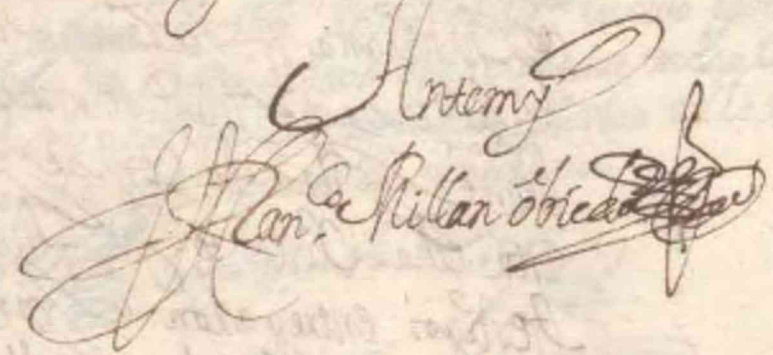 Antemy
Fran.co Millan obiedo